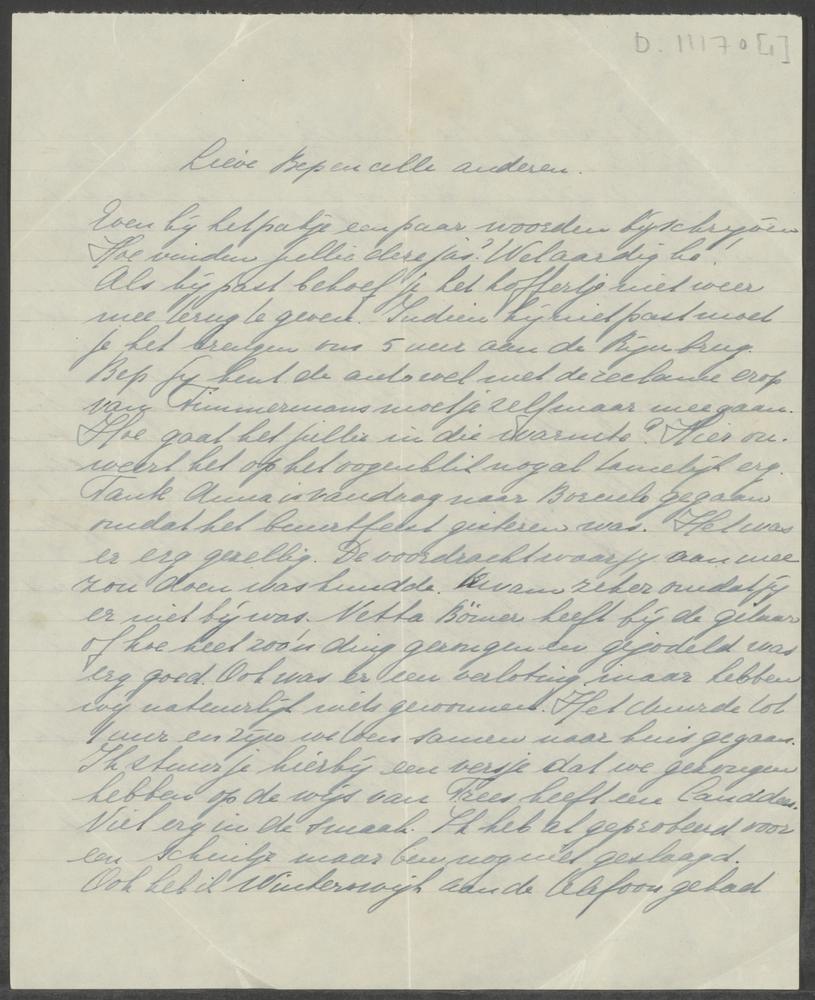 D. 11170 [1]
Lieve Bep en alle anderen.
Even bij het pakje een paar woorden bijschrijven
Hoe vinden jullie deze jas? Wel aardig hè.
Als hij past behoef je het koffertje niet weer
mee terug te geven. Indien hij niet past moet
je het brengen om 5 uur aan de Rijnbrug.
Bep jij kent de auto wel met de reclame erop
van Timmermans moet je zelf maar meegaan.
Hoe gaat het jullie in die warmte? Hier on-
weert het op het oogenblik nogal tamelijk erg.
Tante Anna is vandaag naar Borculo gegaan
omdat het buurtfeest gisteren was. Het was
er erg gezellig. De voordracht waar jij aan mee
zou doen was kudde. Kwam zeker omdat jij
er niet bij was. Netta Bömer heeft bij de gitaar
of hoe heet zoo'n ding gezongen en gejodeld was
erg goed. Ook was er een verloting maar hebben
wij natuurlijk niets gewonnen. Het duurde tot
1 uur en zijn we toen samen naar huis gegaan.
Ik stuur je hierbij een versje dat we gezongen
hebben op de wijs van Trees heeft een Canadees.
Viel erg in de smaak. Ik heb al geprobeerd voor
een schuitje maar ben nog niet geslaagd.
Ook heb ik Winterswijk aan de telefoon gehad